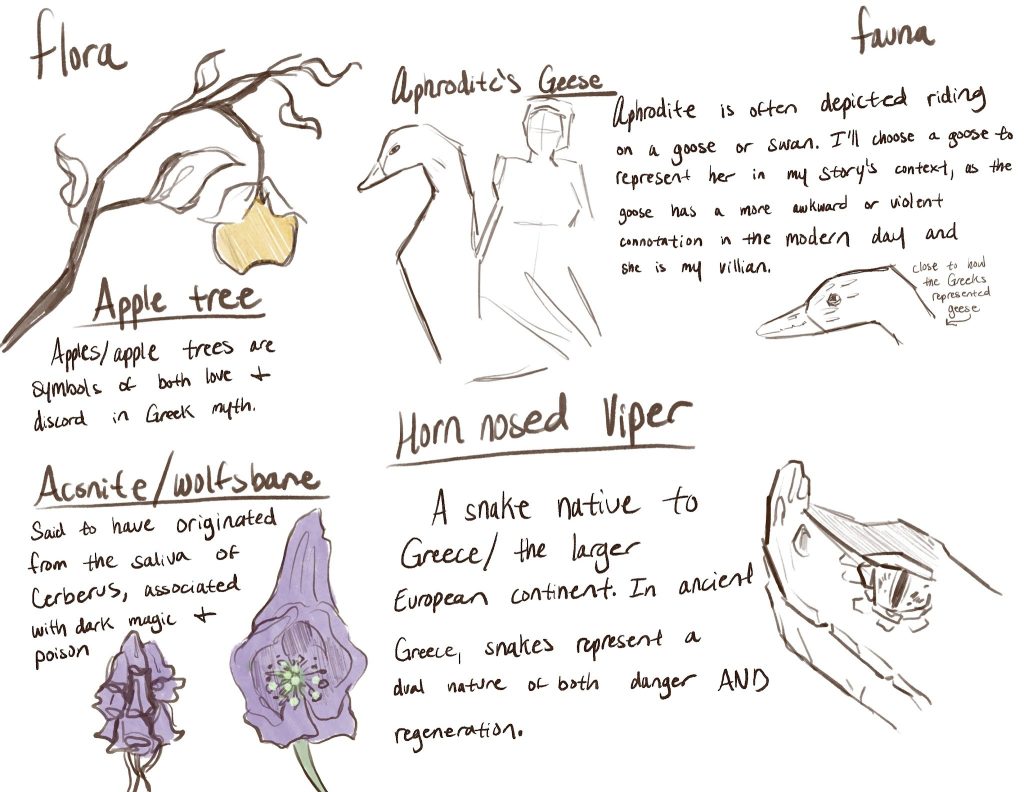 flora
Apple tree
Apples/apple trees are
symbols of both love +
discord in Greek myth.
Aconite/wolfsbane
Said to have originated
from the saliva of
Cerberus, associated
with dark magic +
poison
fauna
Aphrodite's Geese
Aphrodite is often depicted riding
on a goose or swan. I'll choose a goose to
represent her in my story's context, as the
goose has a more awkward or violent
connotation in the modern day and
she is my villian.
close to how
the Greeks
represented
geese
Horn nosed Viper
A snake native to
Greece/ the larger
European continent. In ancient
Greece, snakes represent a
dual nature of both danger AND
regeneration.